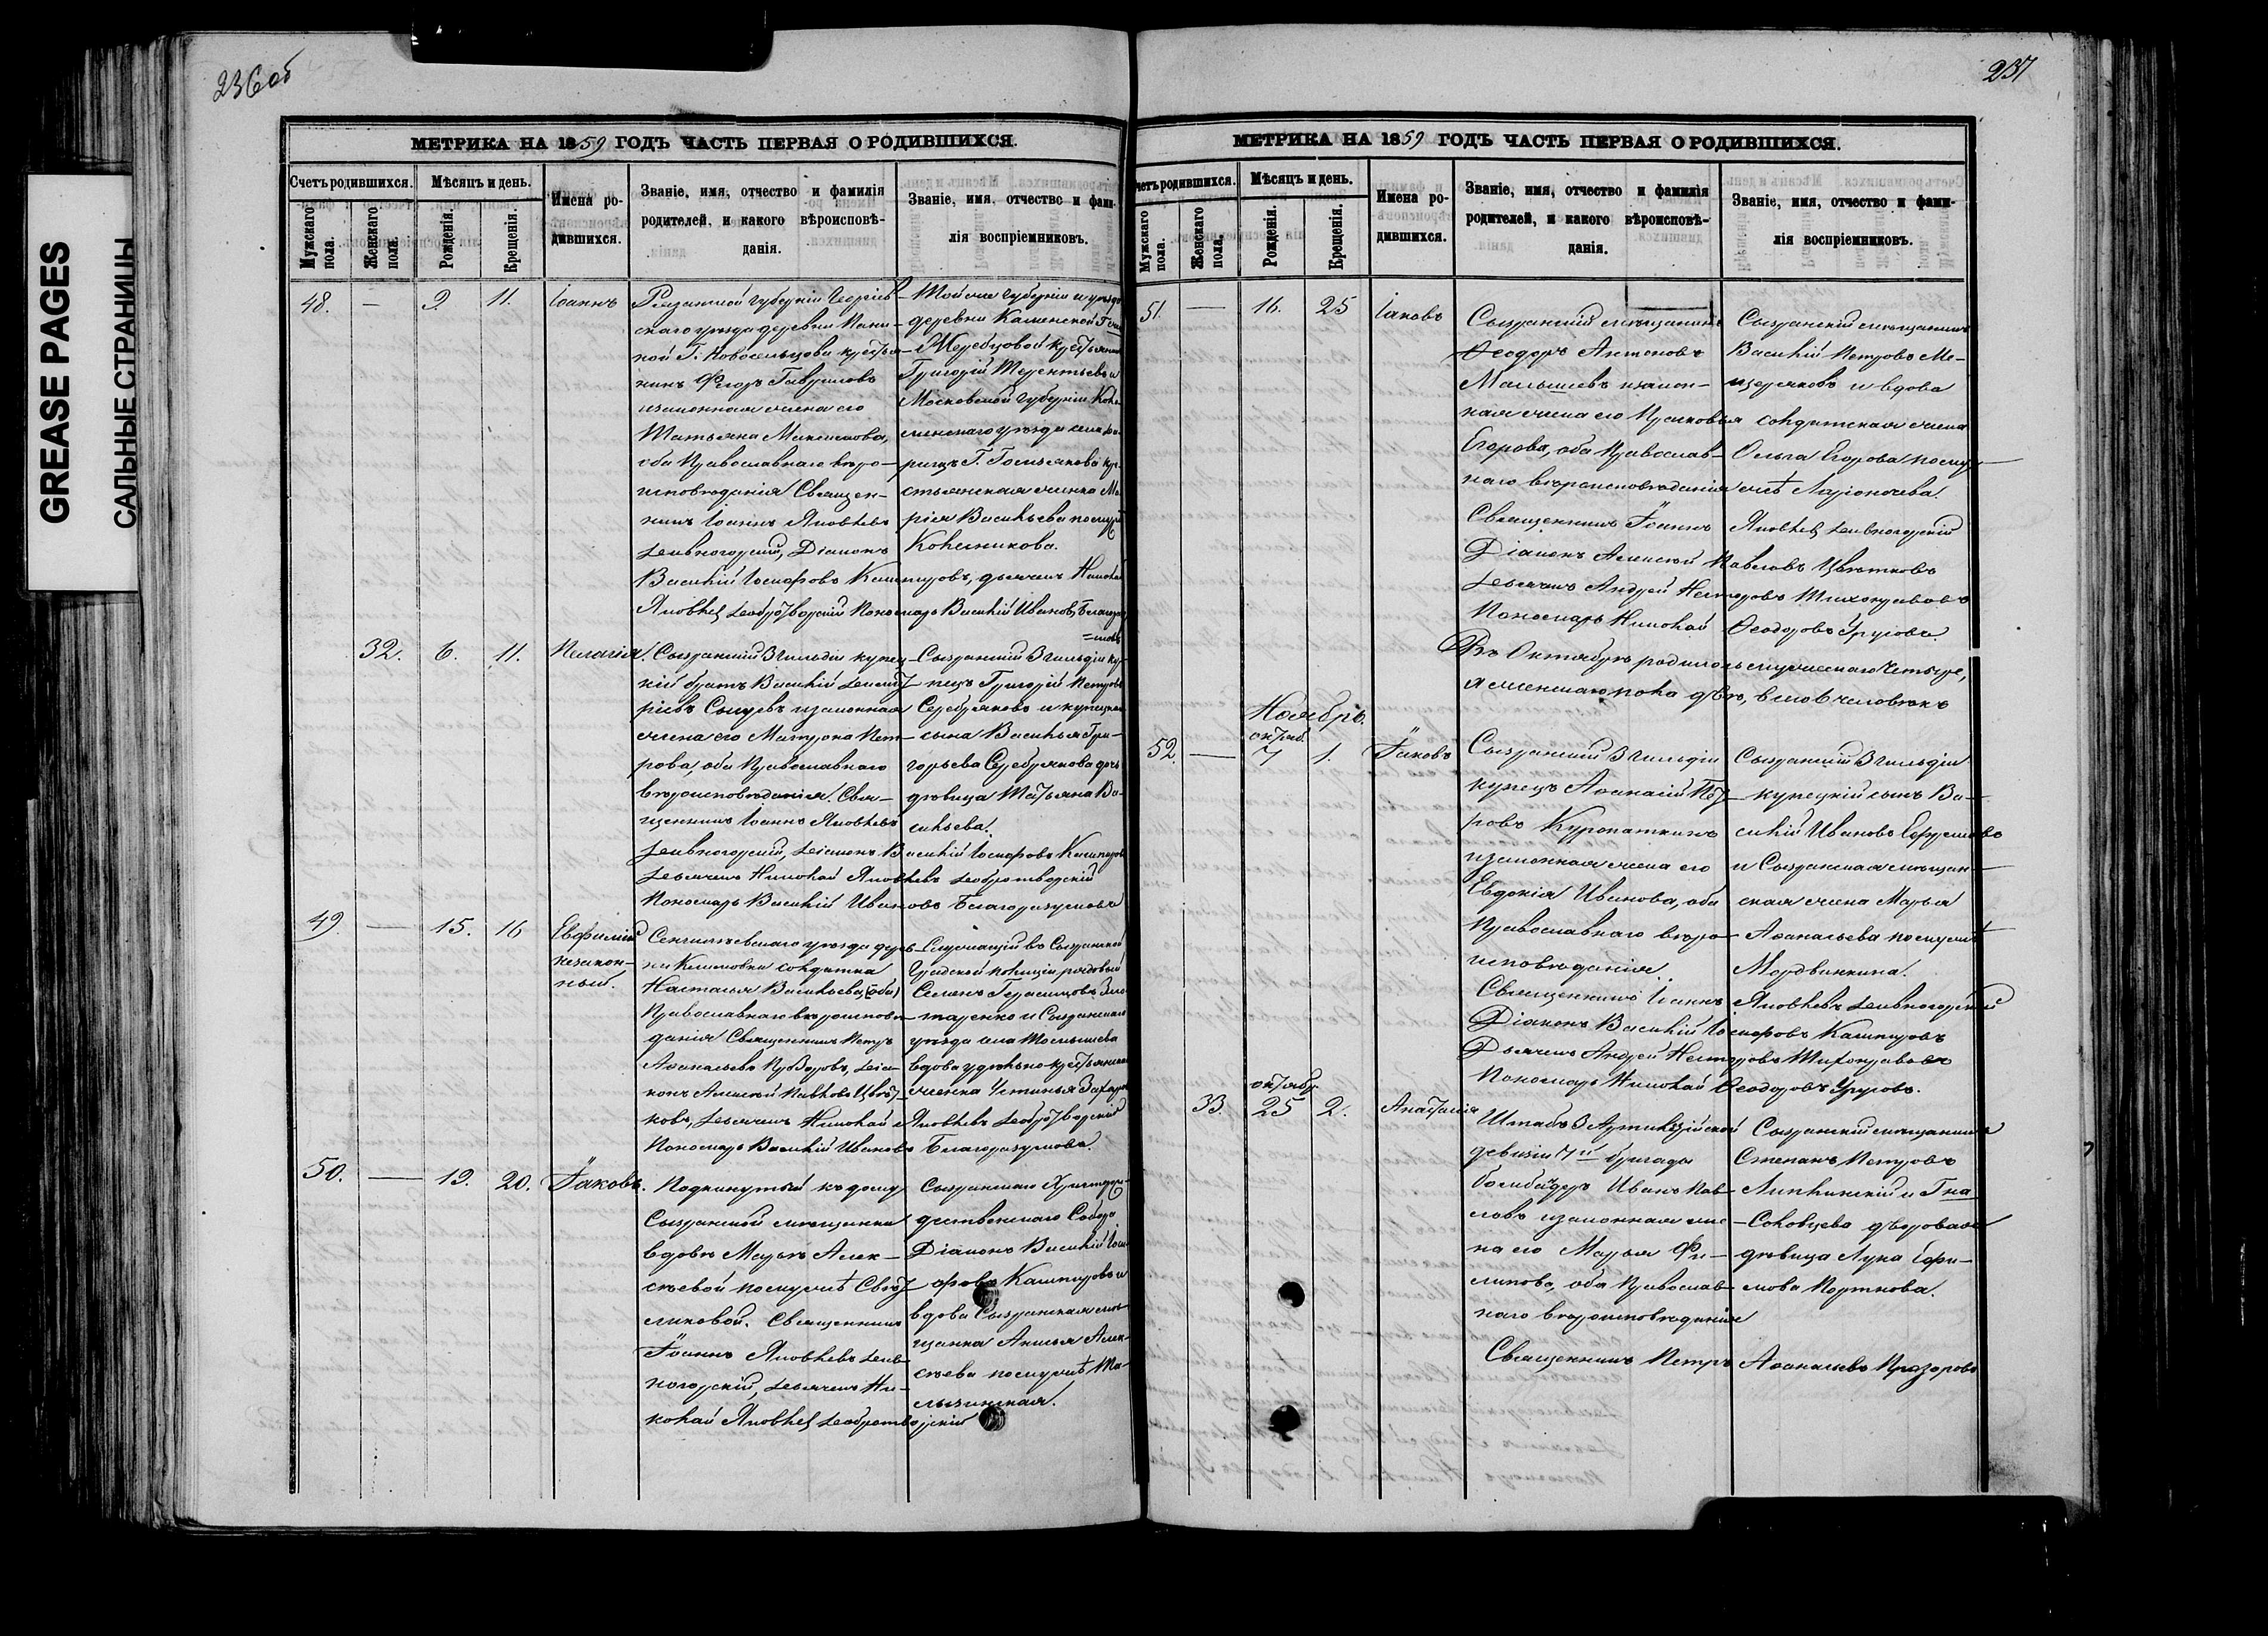 GREASE PAGES
САЛЬНЫЕ СТРАНИЦЫ
236об
МЕТРИКА НА 1859 ГОДЪ ЧАСТЬ ПЕРВАЯ О РОДИВШИХСЯ.
Счетъ родившихся.
Мужскаго пола.
Женскаго пола.
Мѣсяцъ и день.
Рожденія.
Крещенія.
Имена родившихся.
Званіе, имя, отчество и фамилія
родителей, и какого вѣроисповѣ-
данія.
Званіе, имя, отчество и фами-
лія воспріемниковъ.
48. — 9. 11. Іоаннъ
Рязанской губерніи
скаго уѣзда деревни
кой Г. Новосельцова крестья-
нинъ Фгоръ Гавриловъ
и законная жена его
Татьяна Максимова,
оба Православнаго вѣро-
исповѣданія Священ-
никъ Іоаннъ Яковлевъ
Дивногорскій, Діаконъ
Василій Іосифовъ Кашпуровъ, дьячекъ Николай
Яковлев Добротворскій Пономарь Василій Ивановъ Благоразу-
=мовъ
Той же губерніи и уѣзда
деревни Каменской Г-жи
Жеребцовой крестьянинъ
Григорій Терентьевъ и
Московской губерніи Коло-
менскаго уѣзда села
Г. крес-
стьянская женка Ма-
рія Васильева по мужѣ
Колесникова.
32. 6. 11. Пелагія.
Сызранскій 3 гильдіи купец-
кій братъ Василій Дмит-
ріевъ Сыцевъ и законная
жена его Матрона Пет-
рова, оба Православнаго
вѣроисповѣданія. Свя-
щенникъ Іоаннъ Яковлевъ
Дивногорскій, Діаконъ Василій Іосифовъ Кашпуровъ
Дьячекъ Николай Яковлевъ Добротворскій
Пономарь Василій Ивановъ Благоразумовъ
Сызранскій 3 гильдіи ку-
пецъ Григорій Петровъ
Серебряковъ и купецкаго
сына Василья Гри-
горьева Серебрякова дочь
дѣвица Татьяна Ва-
сильева.
49. — 15. 16 Евфимій
незакон-
ный.
Сенгилѣевскаго уѣзда дерев-
ни Климовки солдатка
Настасья Васильева, (оба)
Православнаго вѣроисповѣ-
данія Священникъ Петръ
Аѳанасьевъ Прозоровъ, Діа-
конъ Алексѣй Павловъ Цвѣт-
ковъ, Дьячекъ Николай Яковлевъ Добротворскій
Пономарь Василій Ивановъ Благоразумовъ.
Служащій въ Сызранской
Градской полиціи рядовый
Семенъ Герасимовъ
и Сызранскаго
уѣзда села
вдова удѣльно крестьянская
женка Устинья Захарова
50. — 19. 20. Іаковъ.
Подкинутый къ дому
Сызранской мѣщанки
вдовѣ Марьѣ Алек-
сѣевой по мужѣ Свѣт-
ликовой. Священникъ
Іоаннъ Яковлевъ Див-
ногорскій, Дьячекъ Ни-
колай Яковлев Добротворскій
Сызранскаго Христорож-
дественскаго Собора
Діаконъ Василій Іоси-
фовъ Кашпуровъ и
вдова Сызранская мѣ-
щанка Акилья Алек-
сѣева по мужѣ
237
МЕТРИКА НА 1859 ГОДЪ ЧАСТЬ ПЕРВАЯ О РОДИВШИХСЯ.
Счетъ родившихся.
Мужскаго пола.
Женскаго пола.
Мѣсяцъ и день.
Рожденія.
Крещенія.
Имена родившихся.
Званіе, имя, отчество и фамилія
родителей, и какого вѣроисповѣ-
данія.
Званіе, имя, отчество и фами-
лія воспріемниковъ.
51. — 16. 25 Іаковъ
Сызранскій мѣщанинъ
Ѳеодоръ Антоновъ
Малышевъ и закон-
ная жена его Прасковья
Егорова, оба Православ-
наго вѣроисповѣданія
Священникъ Іоаннъ Яковлев Дивногорскій
Діаконъ Алексѣй Павловъ Цвѣтковъ
Дьячекъ Андрей Несторовъ Тихонравовъ
Пономарь Николай Ѳеодоровъ Урусовъ
Сызранскій мѣщанинъ
Василій Петровъ Ме-
щеряковъ и вдова
солдатская жена
Ольга Егорова по му-
жѣ Ларіонова.
Въ Октябрѣ родилось мужескаго четыре,
а женскаго пола двѣ, всего 6 человѣкъ
Ноябрь.
октяб.
52. — 7 1. Іаковъ
Сызранскій 3 гильдіи
купецъ Аѳанасій Пет-
ровъ Куропаткинъ
и законная жена его
Евдокія Иванова, оба
Православнаго вѣро-
исповѣданія.
Священникъ Іоаннъ Яковлевъ Дивногорскій
Діаконъ Василій Іосифовъ Кашпуровъ
Дьячекъ Андрей Несторовъ Тихонравовъ
Пономарь Николай Ѳеодоровъ Урусовъ.
Сызранскій 3 гильдіи
купецкій сынъ Ва-
силій Ивановъ
и Сызранская мѣщан-
ская жена Марья
Аѳанасьева по мужѣ
Мордвинкина.
октябр
33. 25 2. Анастасія
Штабъ 3 Артиллерійской
девизіи 7й бригады
бомбандеръ Иванъ Пав-
ловъ и законная же-
на его Марья Фи-
липова, оба Православ-
наго вѣроисповѣданія
Священникъ Петръ Аѳанасьевъ Прозоровъ
Сызранскій мѣщанинъ
Степанъ Петровъ
и Г-на
Соковцева дворовая
дѣвица Лукія Ефи-
мова Портнова.